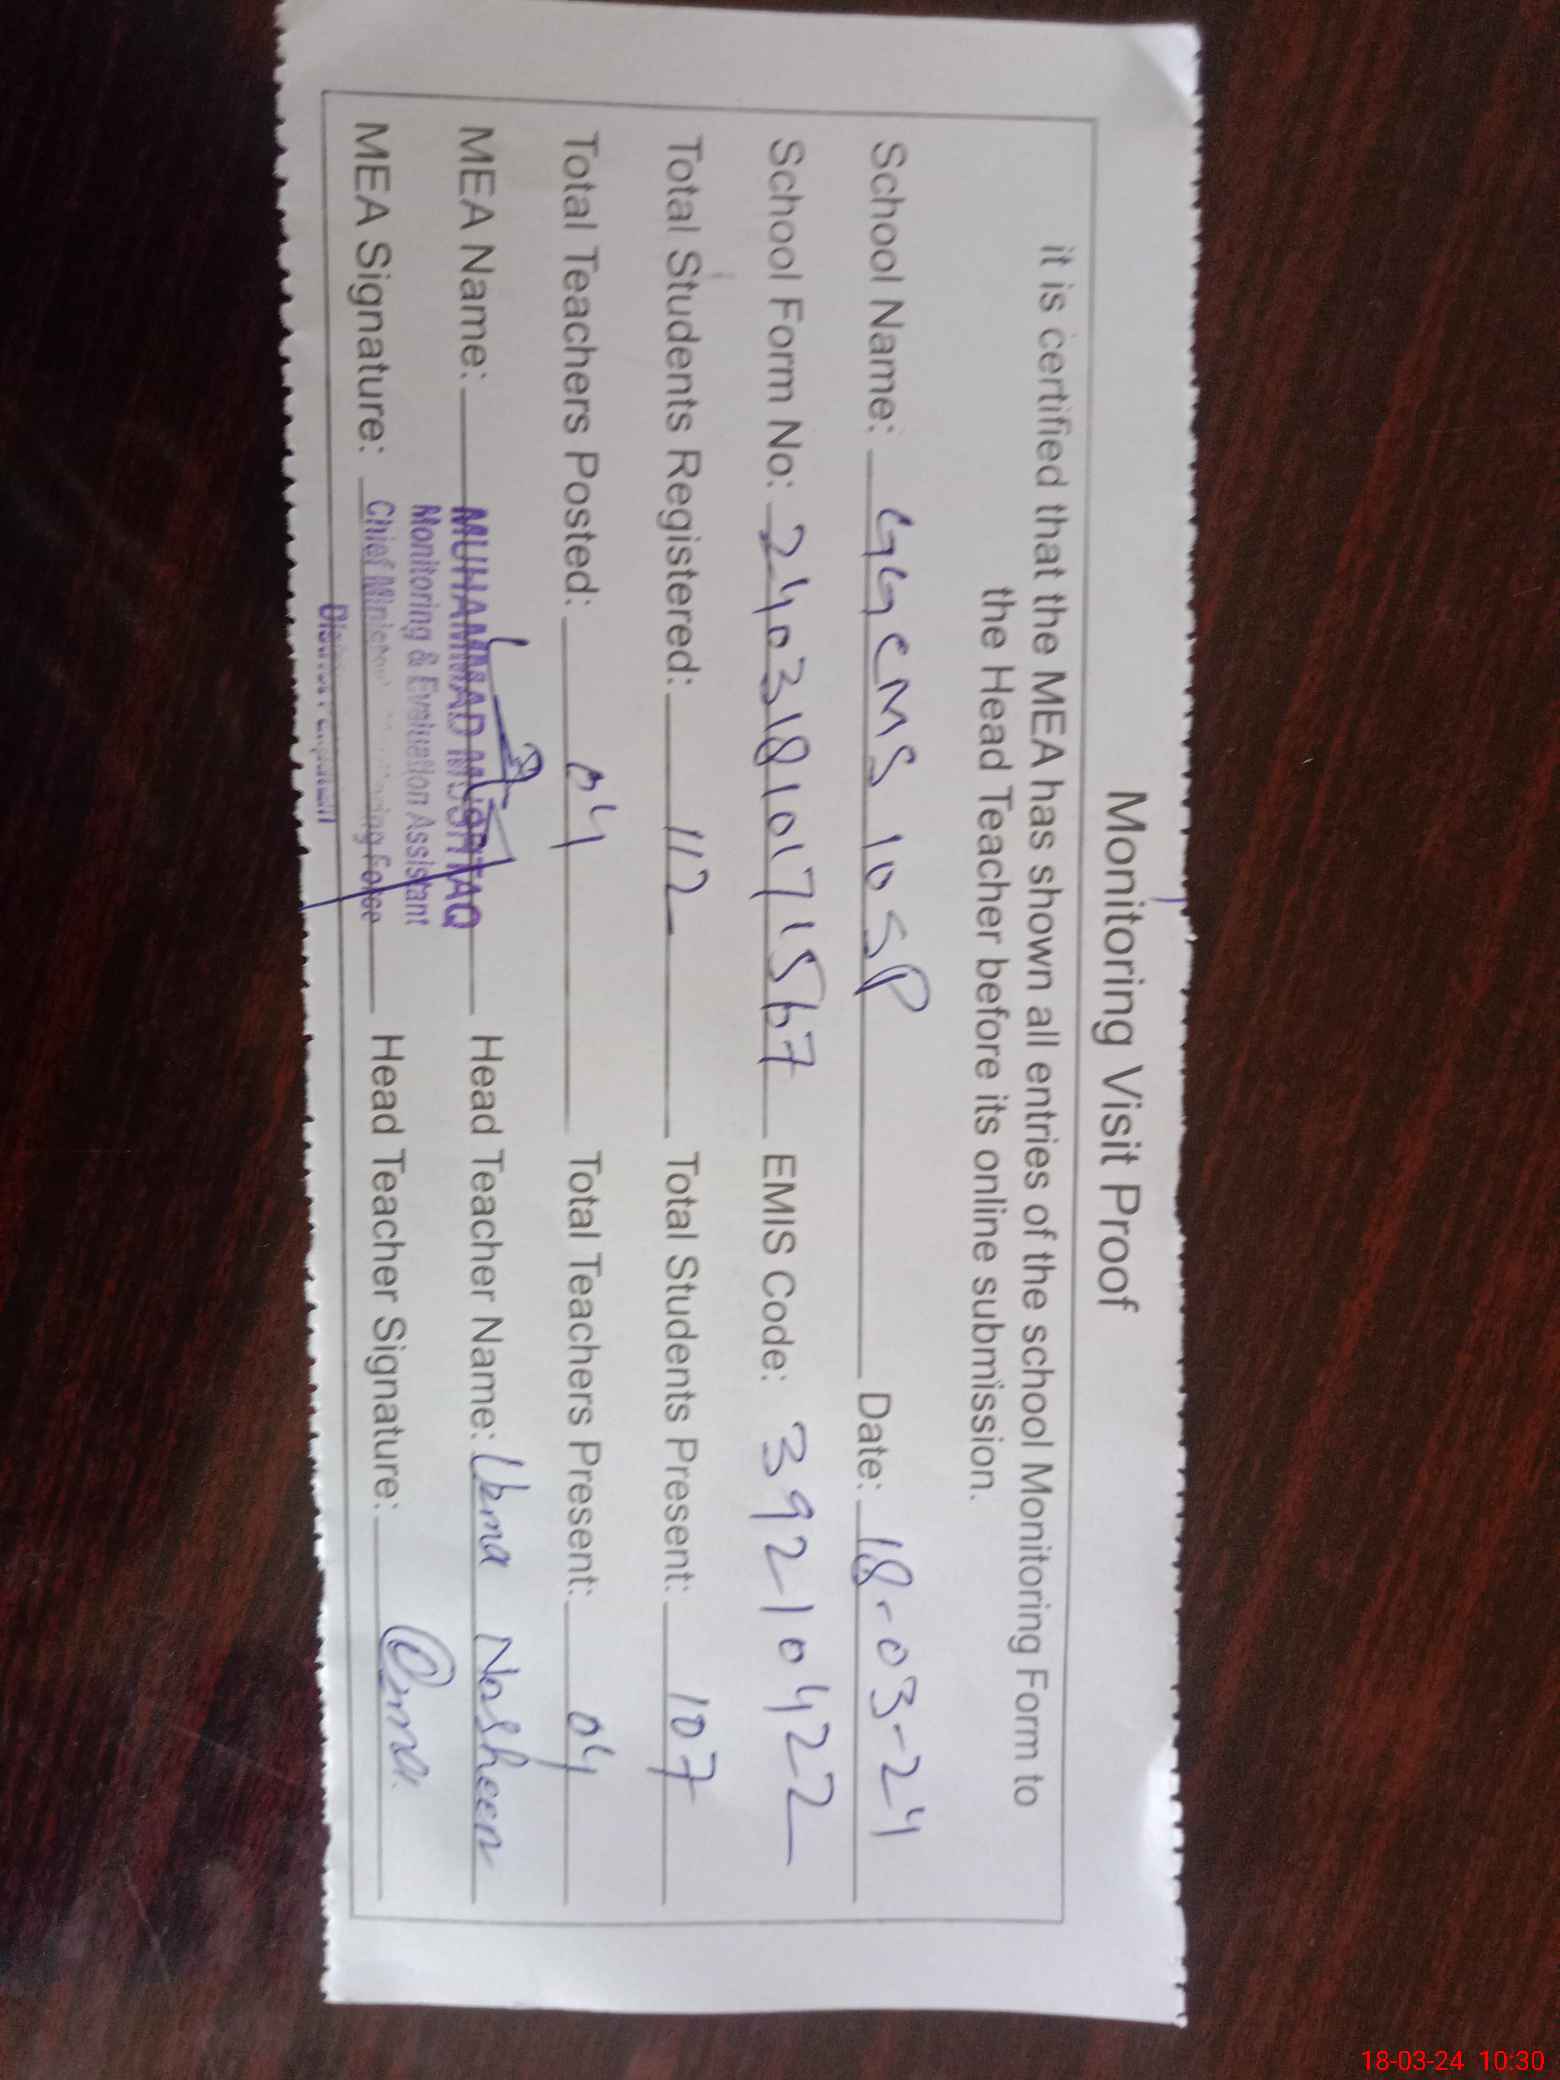 Monitoring Visit Proof
it is certified that the MEA has shown all entries of the school Monitoring Form to
the Head Teacher before its online submission.
School Name: GGCMS 10 SP Date: 18-03-24
School Form No: 24031810171567 EMIS Code: 39210422
Total Students Registered: 112 Total Students Present: 107
Total Teachers Posted: 04 Total Teachers Present: 04
MEA Name: MUHAMMAD MUSHTAQ Head Teacher Name: Uzma Nosheen
Monitoring & Evaluation Assistant
MEA Signature: Chief Minister's Monitoring Force Head Teacher Signature: Uzma.
District
18-03-24 10:30